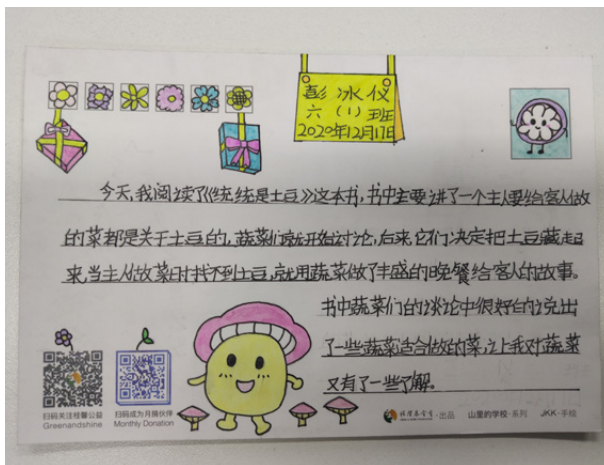 彭冰仪
六（1）班
2020年12月17日
今天,我阅读了《统统是土豆》这本书,书中主要讲了一个主人要给客人做
的菜都是关于土豆的,蔬菜们就开始讨论,后来,它们决定把土豆藏起
来,当主人做菜时找不到土豆,就用蔬菜做了丰盛的晚餐给客人的故事。
书中蔬菜们的谈论中很好的说出
了一些蔬菜适合做的菜,让我对蔬菜
又有了一些了解。
扫码关注桂馨公益
Greenandshine
扫码成为月捐伙伴
Monthly Donation
桂馨基金会·出品
山里的学校·系列
JKK·手绘